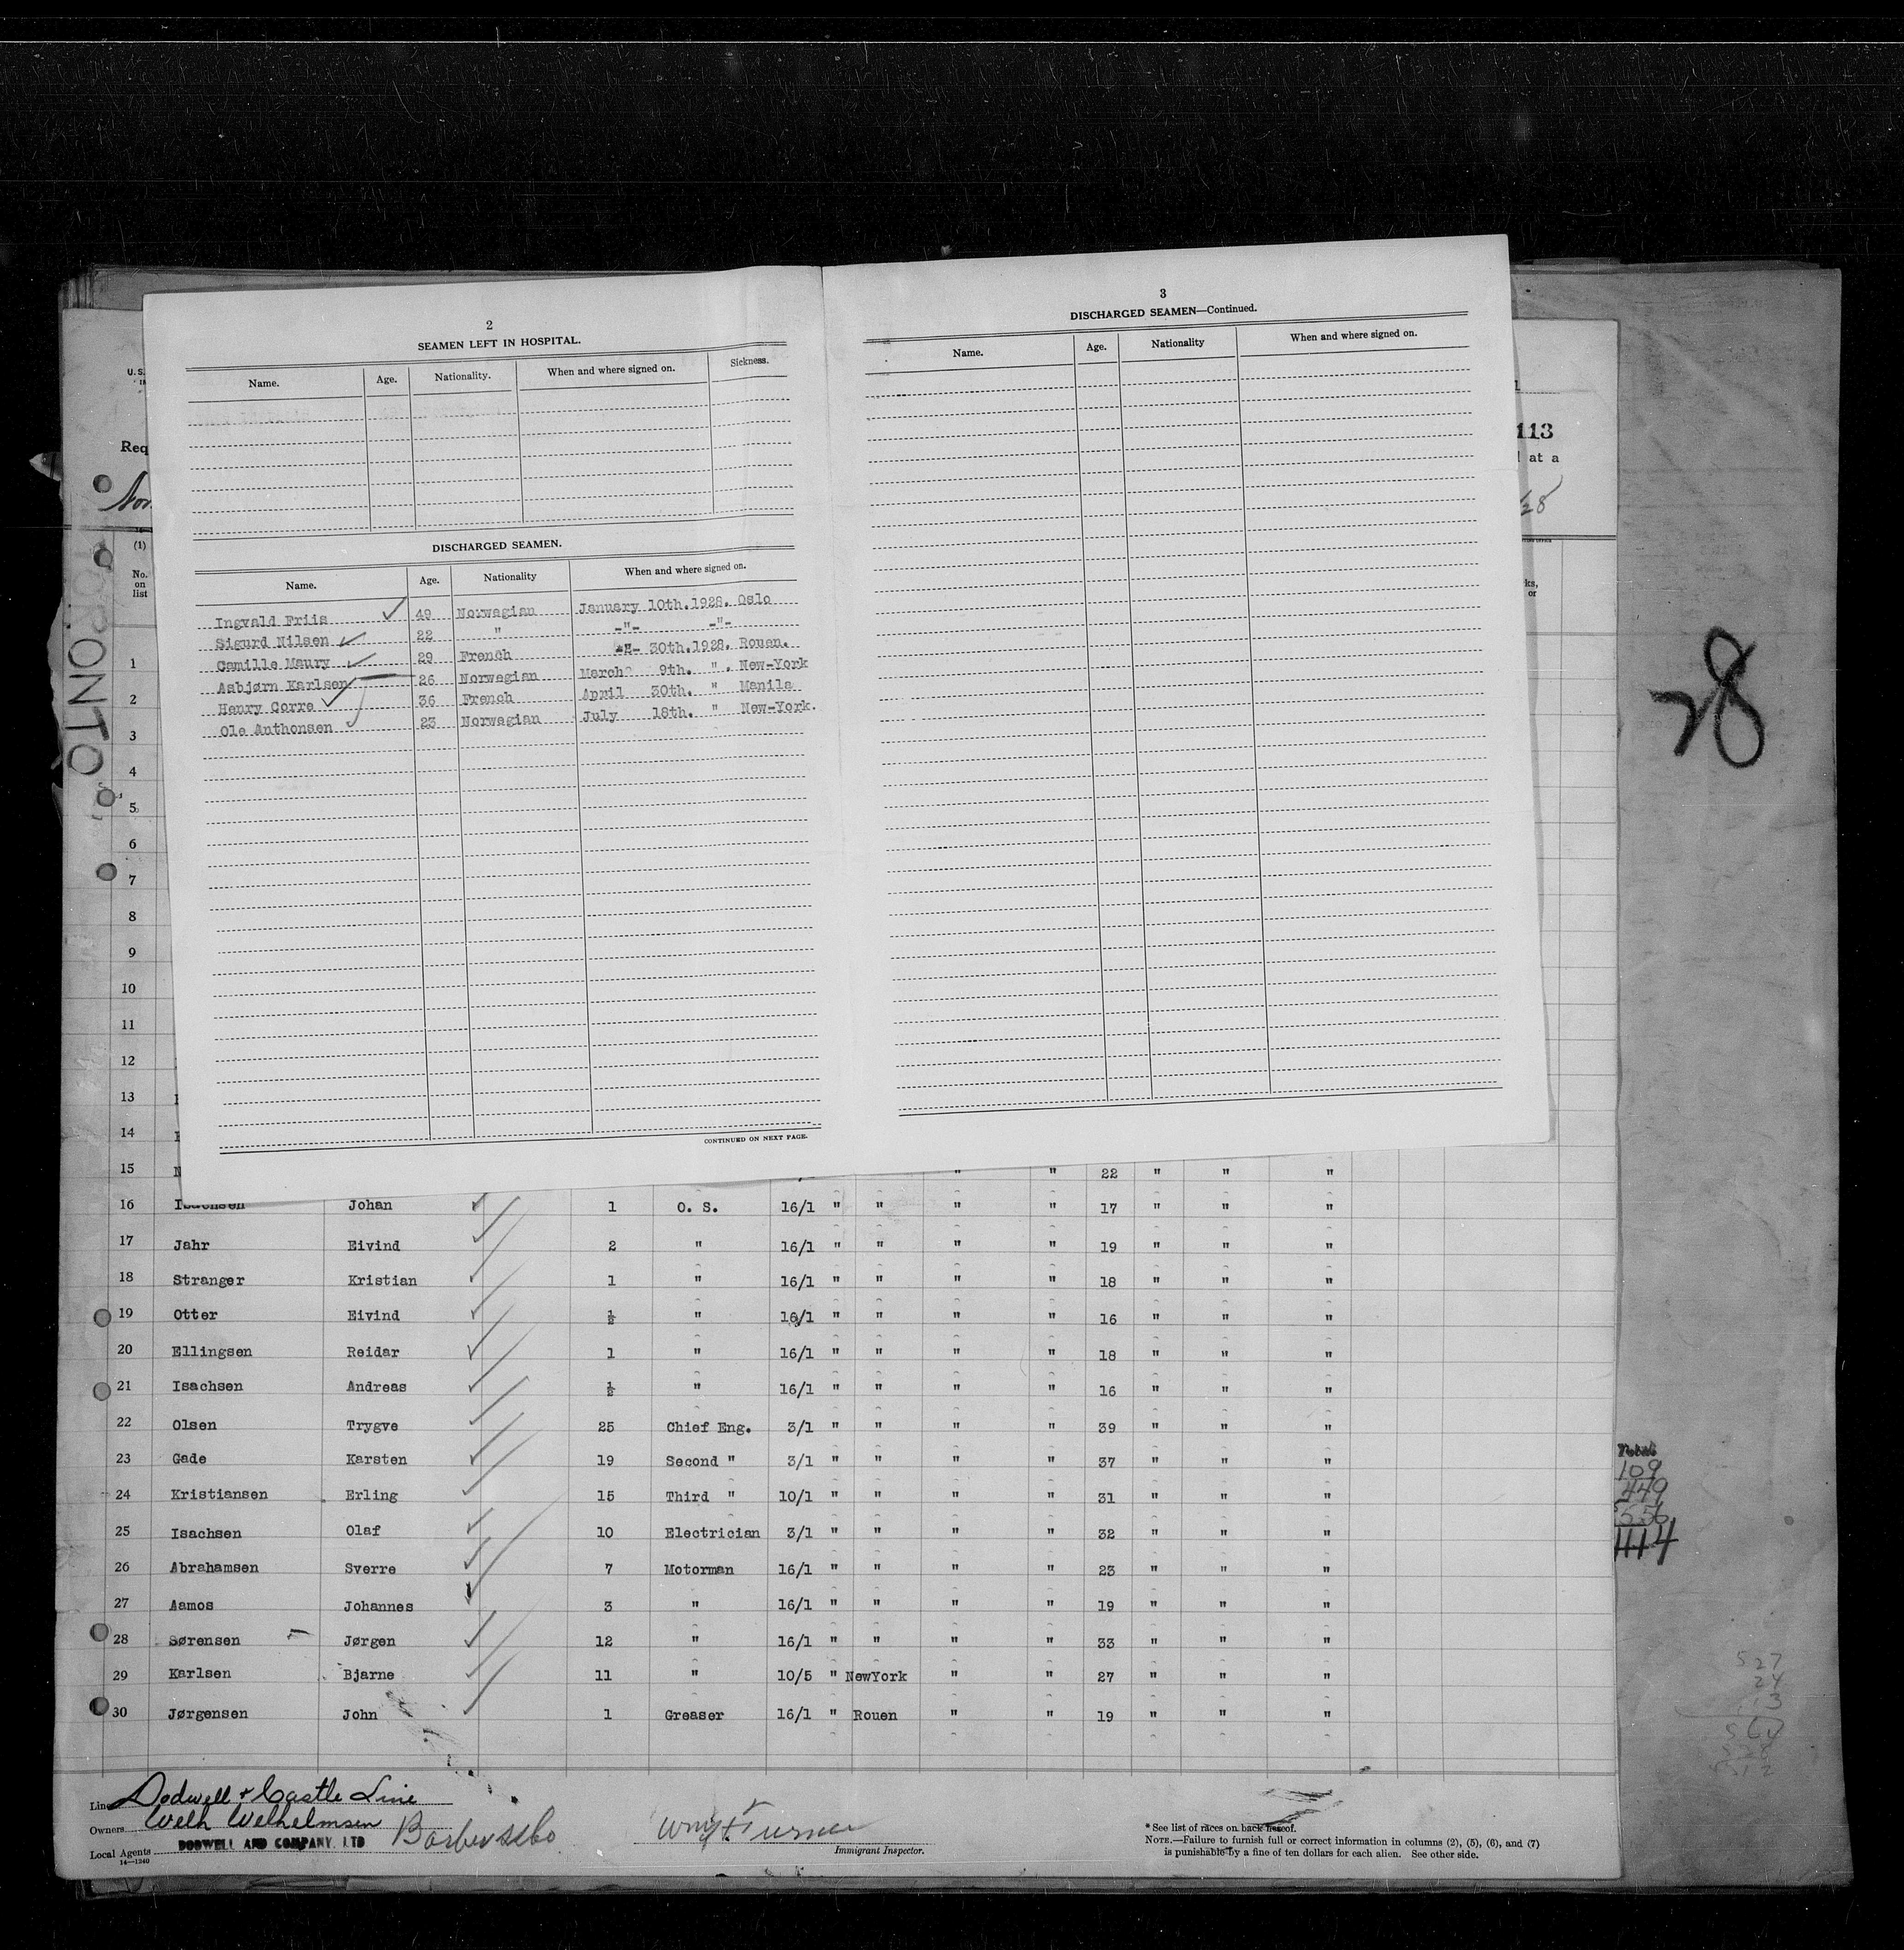 2
SEAMEN LEFT IN HOSPITAL.
Name. Age. Nationality. When and where signed on. Sickness.
DISCHARGED SEAMEN.
Name. Age. Nationality When and where signed on.
Ingvald Friis 49 Norwegian January 10th. 1928. Oslo
Sigurd Nilsen 22 " -"- -"-
Camille Maury 29 French -"- 30th. 1928. Rouen.
Asbjørn Karlsen 26 Norwegian March 9th. " . New-York
Henry Corre 36 French April 30th. " Manila
Ole Anthonsen 23 Norwegian July 18th. " New-York.
CONTINUED ON NEXT PAGE.
3
DISCHARGED SEAMEN—Continued.
Name. Age. Nationality When and where signed on.
U.S.
Req
113
at a
28
(1)
No. on list
PONTO
28
1
2
3
4
5
6
7
8
9
10
11
12
13
14
15 N " " 22 " " "
16 Isachsen Johan 1 O. S. 16/1 " " " " 17 " " "
17 Jahr Eivind 2 " 16/1 " " " " 19 " " "
18 Stranger Kristian 1 " 16/1 " " " " 18 " " "
19 Otter Eivind ½ " 16/1 " " " " 16 " " "
20 Ellingsen Reidar 1 " 16/1 " " " " 18 " " "
21 Isachsen Andreas ½ " 16/1 " " " " 16 " " "
22 Olsen Trygve 25 Chief Eng. 3/1 " " " " 39 " " "
23 Gade Karsten 19 Second " 3/1 " " " " 37 " " "
24 Kristiansen Erling 15 Third " 10/1 " " " " 31 " " "
25 Isachsen Olaf 10 Electrician 3/1 " " " " 32 " " "
26 Abrahamsen Sverre 7 Motorman 16/1 " " " " 23 " " "
27 Aamos Johannes 3 " 16/1 " " " " 19 " " "
28 Sørensen Jørgen 12 " 16/1 " " " " 33 " " "
29 Karlsen Bjarne 11 " 10/5 " NewYork " " 27 " " "
30 Jørgensen John 1 Greaser 16/1 " Rouen " " 19 " " "
109
449
556
1114
527
24
13
564
Line Dodwell & Castle Line
Owners Welh Welhelmsen
Local Agents DODWELL AND COMPANY, LTD
14—1240
Turner
Immigrant Inspector.
* See list of races on back hereof.
NOTE.—Failure to furnish full or correct information in columns (2), (5), (6), and (7)
is punishable by a fine of ten dollars for each alien. See other side.